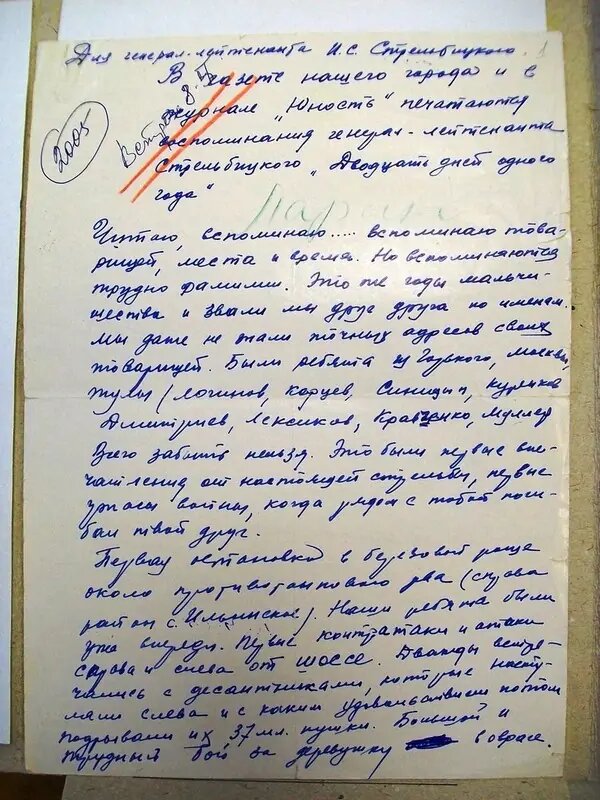 Для генерал-лейтенанта И.С. Стрельбицкого.
В газете нашего города и в
журнале "Юность" печатаются
воспоминания генерал-лейтенанта
Стрельбицкого "Двадцать дней одного
года"
2005
Читаю, вспоминаю..... вспоминаю това-
рищей, места и время. Но вспоминаются
трудно фамилии. Это те годы мальчи-
шества и звали мы друг друга по именам.
Мы даже не знали точных адресов своих
товарищей. Были ребята из Горького, Москвы,
Тулы (Логинов, Карцев, Синицын, Куренков
Дмитриев, Лексиков, Кравченко, Муллер
Всего забыть нельзя. Это были первые впе-
чатления от настоящей стрельбы, первые
ужасы войны, когда рядом с тобой поги-
бал твой друг.
Первая остановка в березовой роще
около противотанкового рва (справа
район с. Ильинское). Наши ребята были
уже впереди. Первые контратаки и атаки
справа и слева от шоссе. Дважды встре-
чались с десантниками, которые насту-
пали слева и с каким удовольствием потом
подрывали их 37 мл. пушки. Большой и
трудный бой за деревушку в овраге.